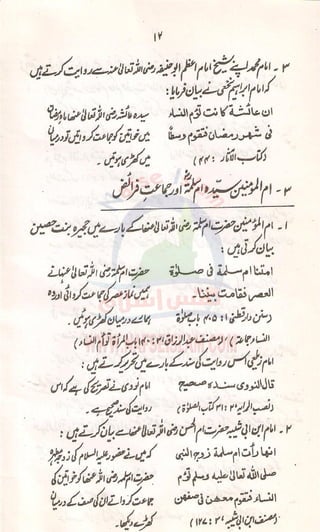 ۱۶
۳۔ امام محمد اپنے شیخ امام اعظم ابو حنیفہ رضی اللہ تعالیٰ عنہ سے روایت کرتے ہیں
کہ امام ابراہیم نخعی نے بیان فرمایا:
ان عائشة کانت تؤم النساء
سیدہ عائشہ رضی اللہ تعالیٰ عنہا ماہ رمضان
فی شهر رمضان فتقوم وسطا
میں خواتین کو جماعت کرواتیں تو درمیان
(کتاب الآثار: ۴۴)
میں کھڑی ہوتیں۔
۳۔ ام المؤمنین سیدہ ام سلمہؓ اور جماعتِ فرائض
۱۔ ام المؤمنین حضرت ام سلمہ رضی اللہ تعالیٰ عنہا کے بارے میں حجیرہ بنت حصین
بیان کرتی ہیں:
امتنا ام سلمة فی صلوٰة
حضرت ام سلمہ رضی اللہ تعالیٰ عنہا نے
العصر فقامت بیننا۔
ہمیں نماز عصر کی جماعت کروائی اور وہ
(سنن دارقطنی ۱: ۴۰۵ باب صلوٰة
ہمارے درمیان کھڑی ہوئیں۔
النساء جماعة) (مصنف عبدالرزاق ۳: ۱۴۰ باب المرأة تؤم النساء)
امام زیلعی اس روایت کی سند کے بارے میں تحریر کرتے ہیں:
قال النووی سندہ صحیح
امام نووی نے تصریح کی ہے کہ اس
(نصب الرایہ ۲: ۳۱ کتاب الصلوٰة)
روایت کی سند صحیح ہے۔
۲۔ امام ابن ابی شیبہ حضرت ام الحسن رضی اللہ تعالیٰ عنہا سے بیان کرتے ہیں:
انها رأت ام سلمة زوج النبی
کہ میں نے حضور علیہ السلام کی زوجہ
صلی اللہ تعالیٰ علیہ وسلم تؤم
حضرت ام سلمہ رضی اللہ عنہا کو خواتین کی
النساء فتقوم معهن فی صفهن
جماعت کرواتے ان کی صف کے درمیان
(مصنف ابن ابی شیبہ ۲:
کھڑے دیکھا۔